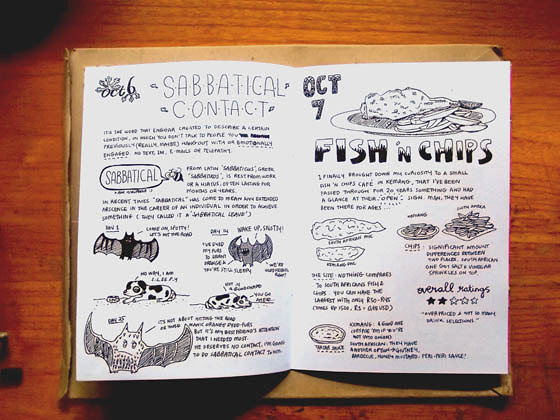 Oct 6
SABBATICAL
CONTACT
IT'S THE WORD THAT ENGOAR CREATED TO DESCRIBE A CERTAIN
CONDITION, IN WHICH YOU DON'T TALK TO PEOPLE YOU
PREVIOUSLY (REALLY, MAYBE) HANGOUT WITH OR EMOTIONALLY
ENGAGED. NO TEXT, IM, E-MAILS OR TELEPATHY.
SABBATICAL
FROM LATIN 'SABBATICUS', GREEK
'SABBATIKOS', IS REST FROM WORK
OR A HIATUS, OFTEN LASTING FOR
MONTHS OR YEARS.
IN RECENT TIMES 'SABBATICAL' HAS COME TO MEAN ANY EXTENDED
ABSENCE IN THE CAREER OF AN INDIVIDUAL IN ORDER TO ACHIEVE
SOMETHING (THEY CALLED IT A 'SABBATICAL LEAVE')
DAY 1
COME ON, SPOTTY!
LET'S HIT THE ROAD
NO WAY, I AM
SLEEPY
DAY 14
WAKE UP, SPOTTY!
I'VE DYED
MY FURS
TO BRIGHT
ORANGE &
YOU'RE STILL SLEEPY
DAY 25
IT'S NOT ABOUT HITTING THE ROAD
OR THOSE MANIC ORANGE DYED-FURS
BUT IT'S MY BEST FRIEND'S ATTENTION
THAT I NEEDED MOST.
HE DESERVES NO CONTACT. I'M GOING
TO DO SABBATICAL CONTACT TO HIM.
OCT
7
FISH 'N CHIPS
I FINALLY BROUGHT DOWN MY CURIOSITY TO A SMALL
FISH 'N CHIPS CAFÉ IN KEMANG, THAT I'VE BEEN
PASSED THROUGH FOR 20 YEARS SOMETHING AND HAD
A GLANCE AT THEIR 'OPEN' SIGN. MAN, THEY HAVE
BEEN THERE FOR AGES...
SOUTH AFRICAN FNC
KEMANG FNC
KEMANG
SOUTH AFRICA
CHIPS : SIGNIFICANT AMOUNT
DIFFERENCES BETWEEN
TWO PLACES. SOUTH AFRICAN
ONE GOT SALT & VINEGAR
SPRINKLES ON TOP
THE SIZE : NOTHING COMPARES
TO SOUTH AFRICANS FISH &
CHIPS. YOU CAN HAVE THE
LARGEST WITH ONLY R30-R45
overall ratings
"OVERPRICED & NOT SO MANY
DRINK SELECTIONS."
TARTAR SAUCE
KEMANG : A GOOD ONE
SOUTH AFRICAN : THEY HAVE
ANOTHER OPTION - CHUTNEY,
BARBECUE, HONEY MUSTARD, PERI-PERI SAUCE!